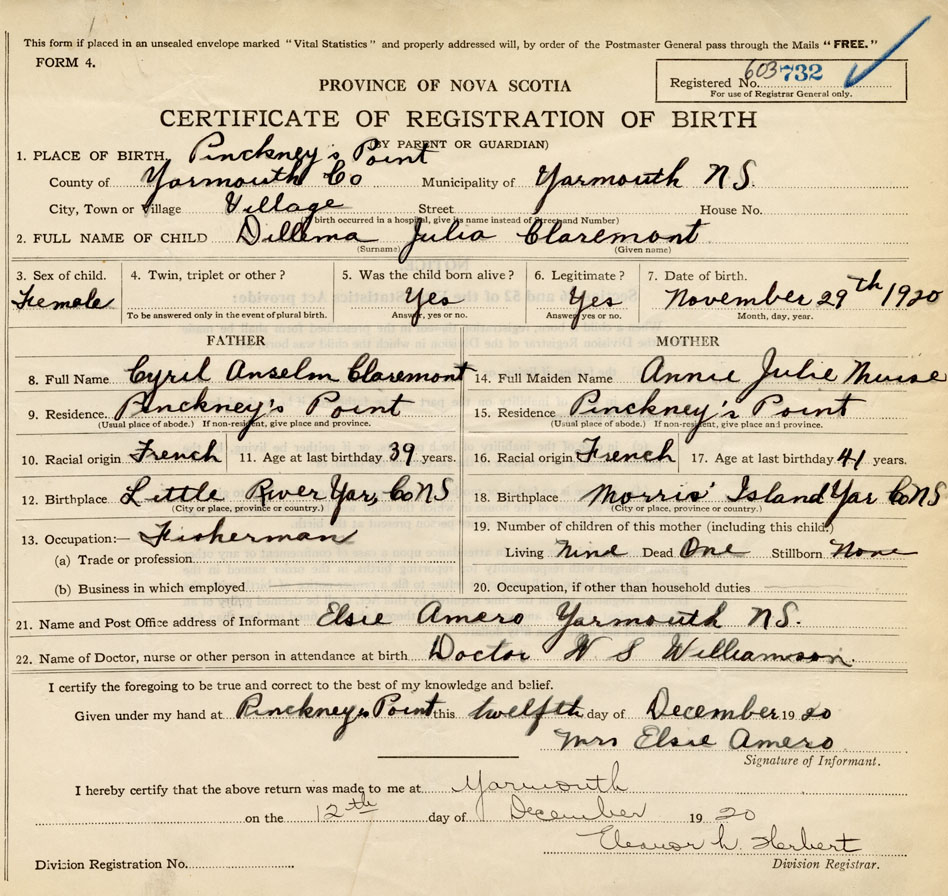 This form if placed in an unsealed envelope marked "Vital Statistics" and properly addressed will, by order of the Postmaster General pass through the Mails "FREE."
FORM 4.
Registered No. 603732
For use of Registrar General only.
PROVINCE OF NOVA SCOTIA
CERTIFICATE OF REGISTRATION OF BIRTH
(BY PARENT OR GUARDIAN)
1. PLACE OF BIRTH, Pinckney's Point
County of Yarmouth Co Municipality of Yarmouth N.S.
City, Town or Village Village Street House No.
(If birth occurred in a hospital, give its name instead of Street and Number)
2. FULL NAME OF CHILD Dillima Julia Claremont
(Surname) (Given name)
3. Sex of child. 4. Twin, triplet or other? 5. Was the child born alive? 6. Legitimate? 7. Date of birth.
Female Yes Yes November 29th 1920
To be answered only in the event of plural birth. Answer, yes or no. Answer yes or no. Month, day, year.
FATHER MOTHER
8. Full Name Cyril Anselm Claremont 14. Full Maiden Name Annie Julie Muise
9. Residence. Pinckney's Point 15. Residence Pinckney's Point
(Usual place of abode.) If non-resident, give place and province. (Usual place of abode.) If non-resident, give place and province.
10. Racial origin French 11. Age at last birthday 39 years. 16. Racial origin French 17. Age at last birthday 41 years.
12. Birthplace Little River Yar, Co NS 18. Birthplace Morris' Island Yar Co NS
(City or place, province or country.) (City or place, province or country.)
13. Occupation:— Fisherman 19. Number of children of this mother (including this child.)
(a) Trade or profession Living Nine Dead One Stillborn None
(b) Business in which employed 20. Occupation, if other than household duties
21. Name and Post Office address of Informant Elsie Amero Yarmouth N.S.
22. Name of Doctor, nurse or other person in attendance at birth Doctor W S Williamson.
I certify the foregoing to be true and correct to the best of my knowledge and belief.
Given under my hand at Pinckneys Point this twelfth day of December 19 20
Mrs Elsie Amero
Signature of Informant.
I hereby certify that the above return was made to me at Yarmouth
on the 12th day of December 19 20
Eleanor L. Herbert
Division Registration No. Division Registrar.